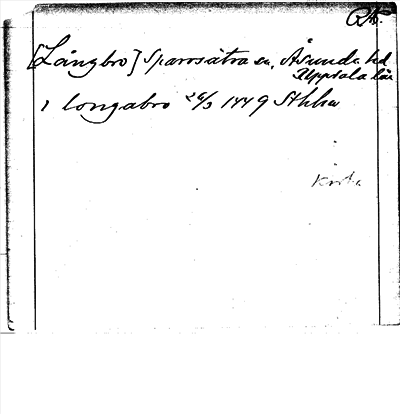 [Långbro] Sparrsätra sn, Åsunda hd
Uppsala län
i longabro 26/3 1449 Sthlm